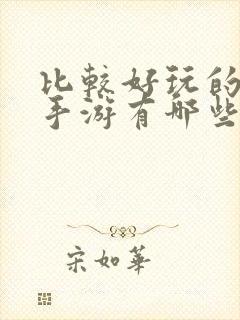 比较好玩的
手游有哪些
宋如華